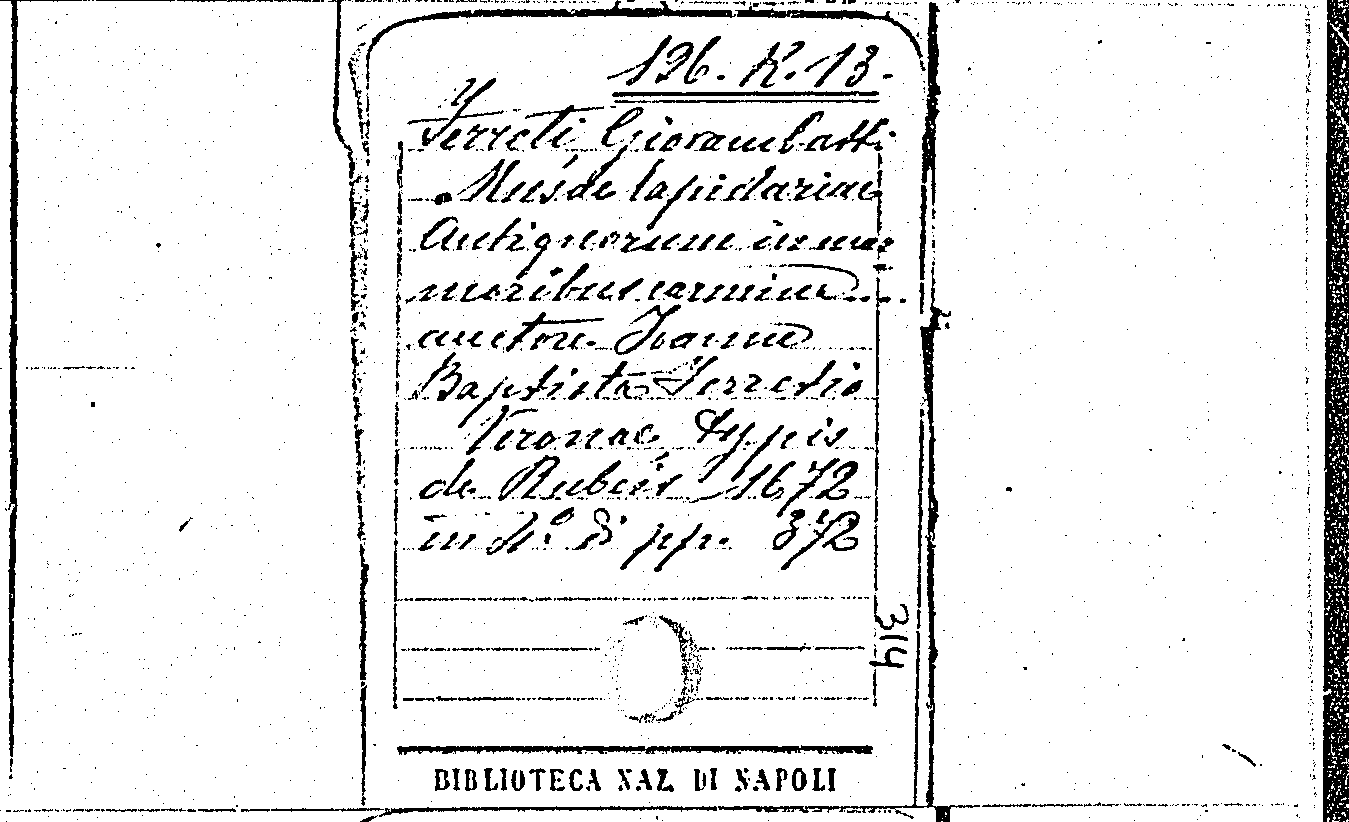 126. K. 13.
Ferreti, Giovambatt.
Musae lapidariae
Antiquorum in mar
moribus carmina....
auctore Ioanne
Baptista Ferretio
Veronae, typis
de Rubeis 1672
in 4.° di pp. 372
314
BIBLIOTECA NAZ. DI NAPOLI